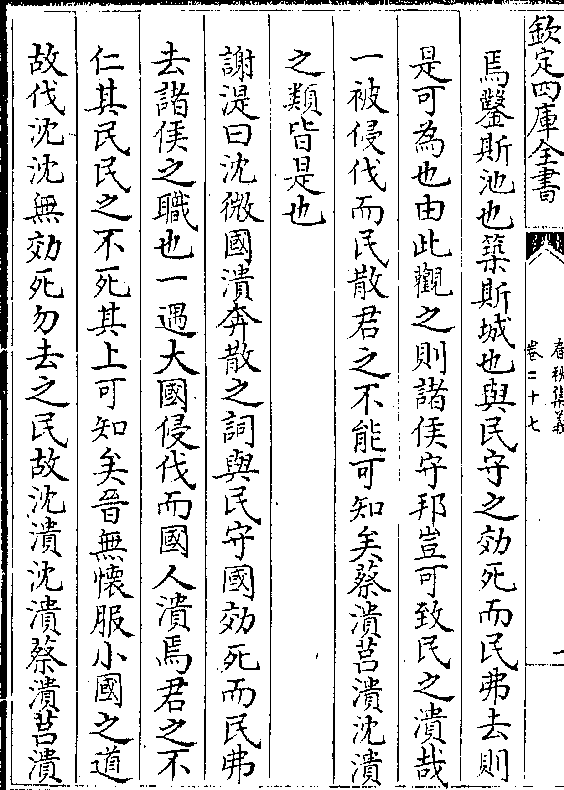 欽定四庫全書
春秋集義
卷二十七
一
焉鑿斯池也築斯城也與民守之効死而民弗去則
是可為也由此觀之則諸侯守邦豈可致民之潰哉
一被侵伐而民散君之不能可知矣蔡潰莒潰沈潰
之類皆是也
謝湜曰沈微國潰奔散之詞與民守國効死而民弗
去諸侯之職也一遇大國侵伐而國人潰焉君之不
仁其民民之不死其上可知矣晉無懷服小國之道
故伐沈沈無効死勿去之民故沈潰沈潰蔡潰莒潰